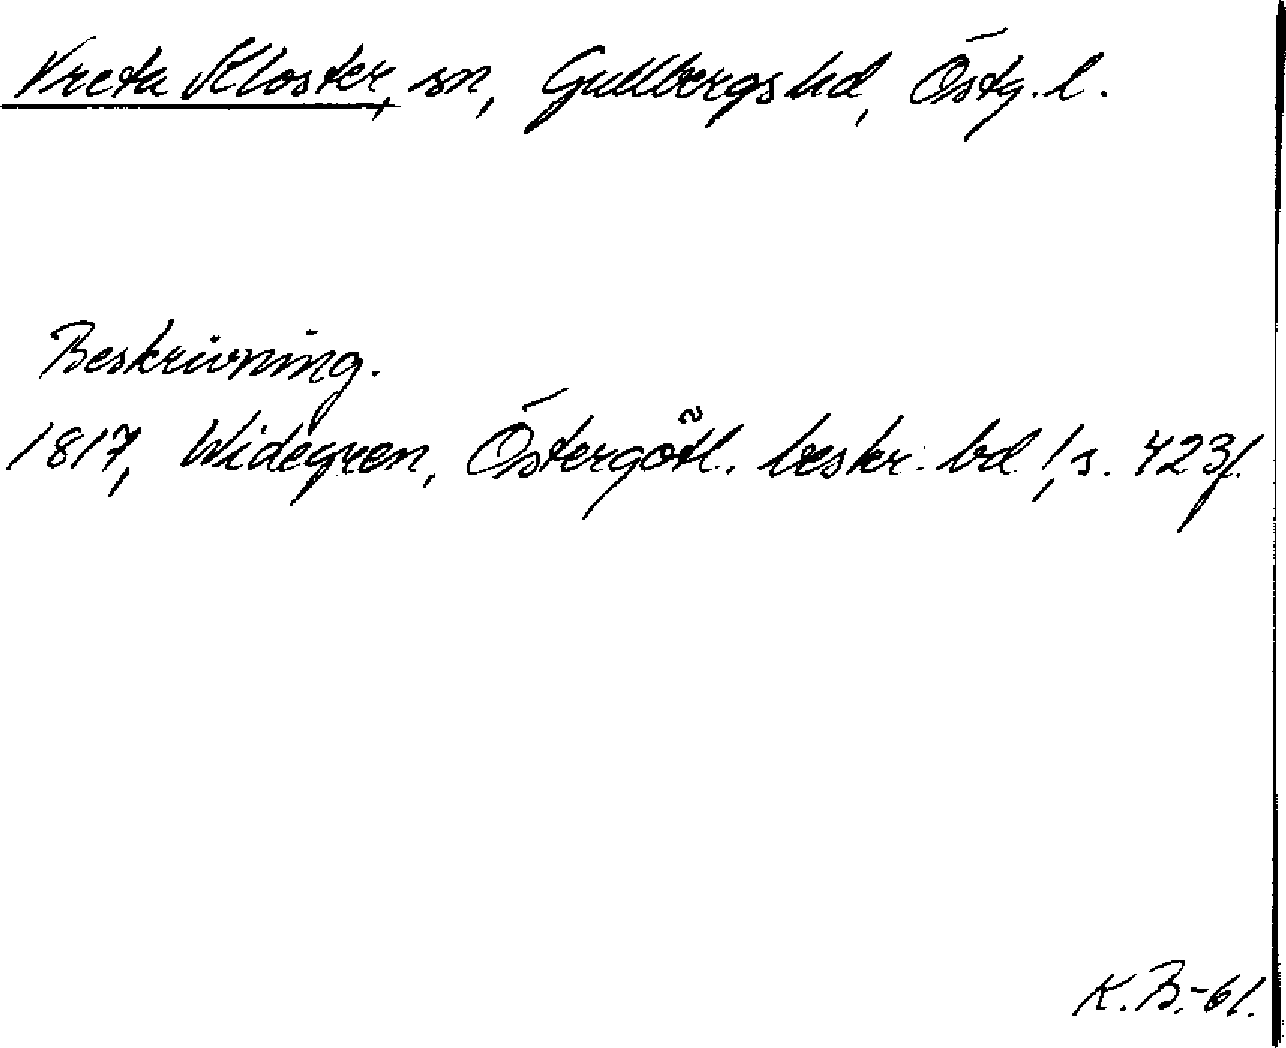 Vreta Kloster, sn, Gullbergs hd, Östg. l.
Beskrivning.
1817, Widegren, Östergötl. beskr. bd 1, s. 423f.
K. B. -61.